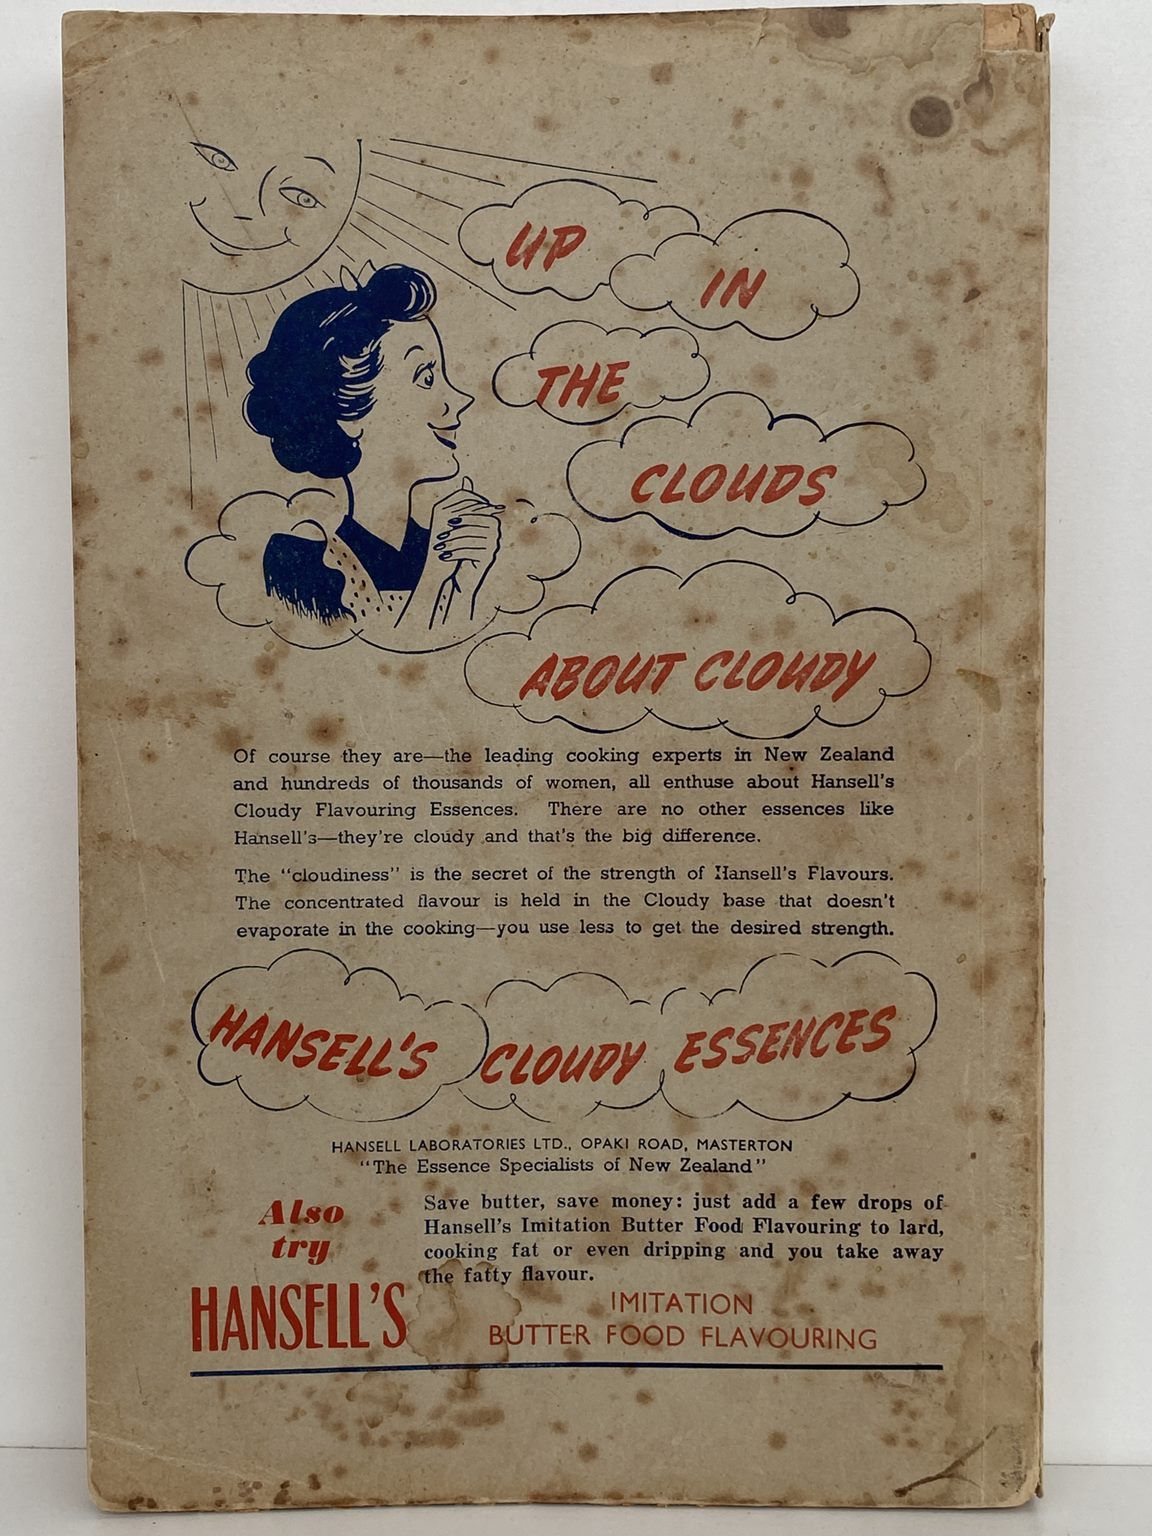 UP
IN
THE
CLOUDS
ABOUT CLOUDY
Of course they are—the leading cooking experts in New Zealand
and hundreds of thousands of women, all enthuse about Hansell's
Cloudy Flavouring Essences. There are no other essences like
Hansell's—they're cloudy and that's the big difference.
The "cloudiness" is the secret of the strength of Hansell's Flavours.
The concentrated flavour is held in the Cloudy base that doesn't
evaporate in the cooking—you use less to get the desired strength.
HANSELL'S CLOUDY ESSENCES
HANSELL LABORATORIES LTD., OPAKI ROAD, MASTERTON
"The Essence Specialists of New Zealand"
Also
try
HANSELL'S
Save butter, save money: just add a few drops of
Hansell's Imitation Butter Food Flavouring to lard,
cooking fat or even dripping and you take away
the fatty flavour.
IMITATION
BUTTER FOOD FLAVOURING